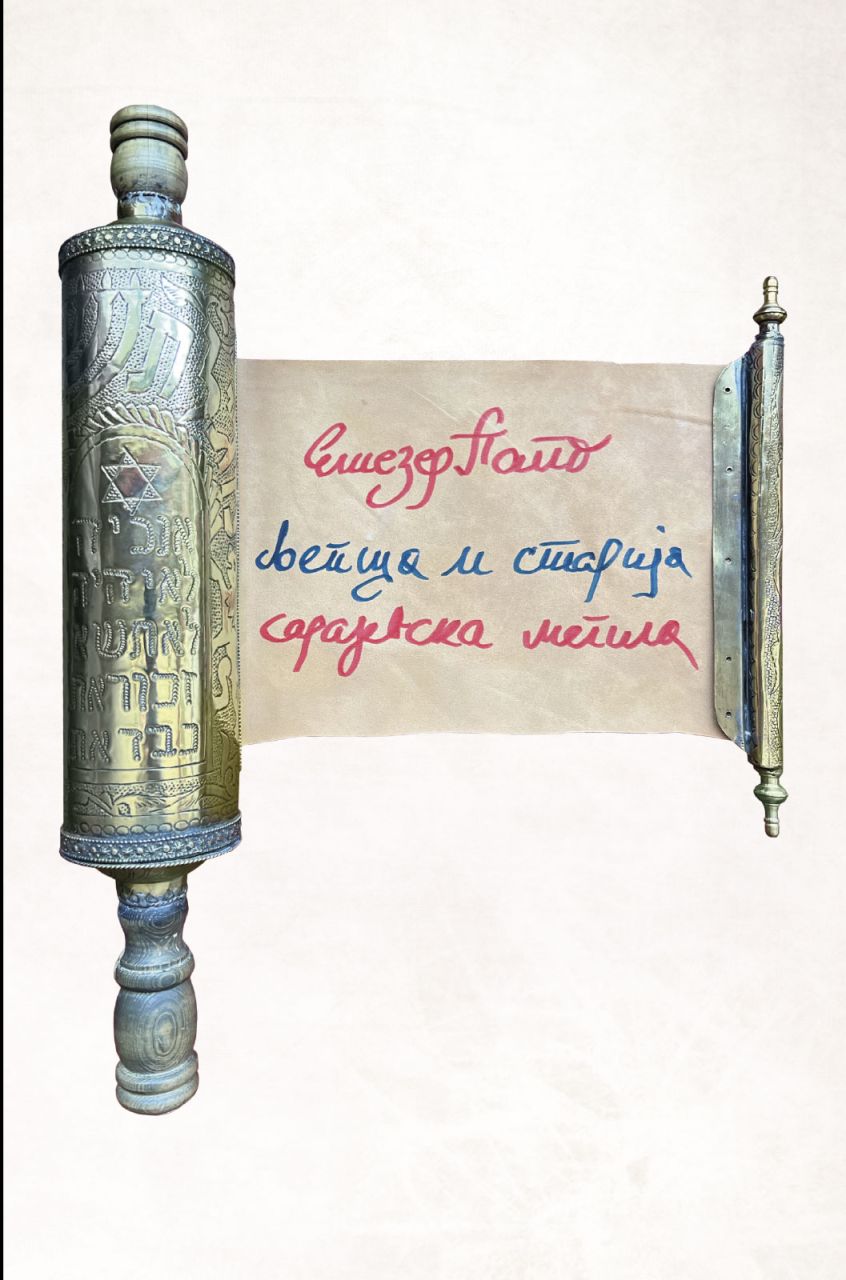 אנכי יה
לא יהיה
לא תשא
זכור את
כבד את
Елиезер Папо
љепша и старија
сарајевска мегила